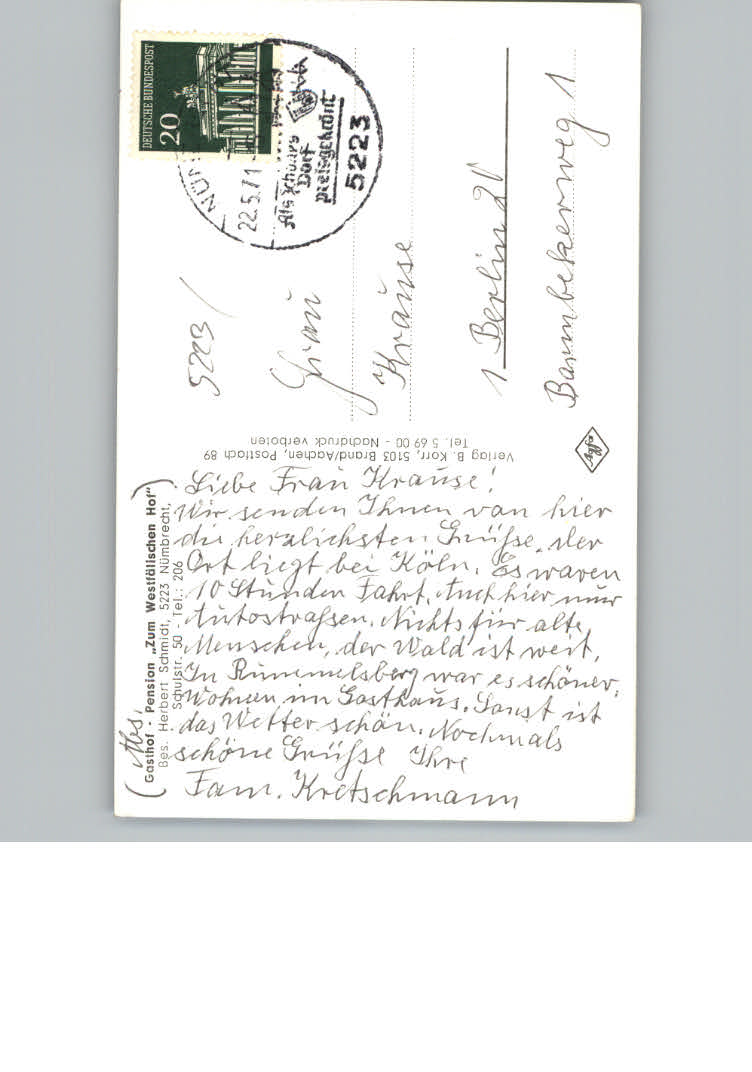 DEUTSCHE BUNDESPOST
20
22.5.71
Als schönes
Dorf
preisgekrönt
5223
5223
Frau
Krause
1 Berlin
Barmbekerweg 1
Verlag B. Korr, 5103 Brand/Aachen, Postfach 89
Tel. 5 69 00 - Nachdruck verboten
(Abs.
Gasthof - Pension „Zum Westfälischen Hof“)
Bes. Herbert Schmidt, 5223 Nümbrecht,
Schulstr. 50 - Tel.: 206
Liebe Frau Krause!
Wir senden Ihnen von hier
die herzlichsten Grüße, der
Ort liegt bei Köln. Es waren
10 Stunden Fahrt. Auch hier nur
Autostraßen. Nichts für alte
Menschen, der Wald ist weit.
In Rummelsberg war es schöner,
wohnen im Gasthaus. Sonst ist
das Wetter schön. Nochmals
schöne Grüße Ihre
Fam. Kretschmann